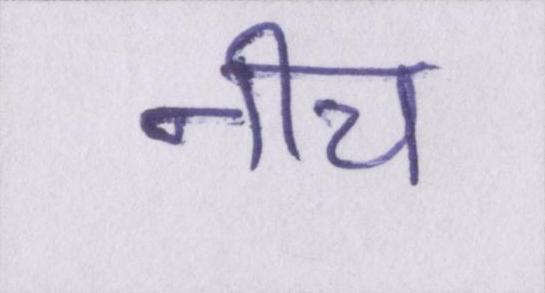 नीच